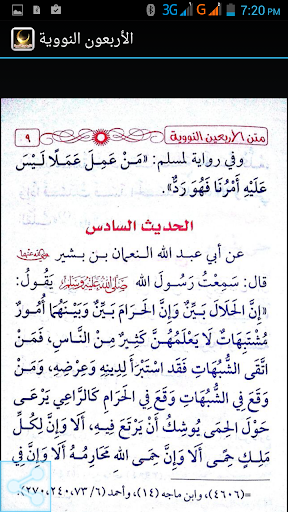 3G G 7:20 PM
الأربعون النووية
متن الأربعين النووية
٩
وفي رواية لمسلم: «مَنْ عَمِلَ عَمَلًا لَيْسَ
عَلَيْهِ أَمْرُنَا فَهُوَ رَدٌّ».
الحديث السادس
عن أبي عبد الله النعمان بن بشير رضي الله عنهما
قال: سَمِعْتُ رَسُولَ الله ﷺ يَقُولُ:
«إِنَّ الْحَلَالَ بَيِّنٌ وَإِنَّ الْحَرَامَ بَيِّنٌ وَبَيْنَهُمَا أُمُورٌ
مُشْتَبِهَاتٌ لَا يَعْلَمُهُنَّ كَثِيرٌ مِنَ النَّاسِ، فَمَنْ
اتَّقَى الشُّبُهَاتِ فَقَدِ اسْتَبْرَأَ لِدِينِهِ وَعِرْضِهِ، وَمَنْ
وَقَعَ فِي الشُّبُهَاتِ وَقَعَ فِي الْحَرَامِ كَالرَّاعِي يَرْعَى
حَوْلَ الْحِمَى يُوشِكُ أَنْ يَرْتَعَ فِيهِ، أَلَا وَإِنَّ لِكُلِّ
مَلِكٍ حِمًى، أَلَا وَإِنَّ حِمَى اللهِ مَحَارِمُهُ أَلَا وَإِنَّ فِي
=(٤٦٠٦)، وابن ماجه (١٤)، وأحمد (٧٣/٦، ٢٤٠، ٢٧٠).